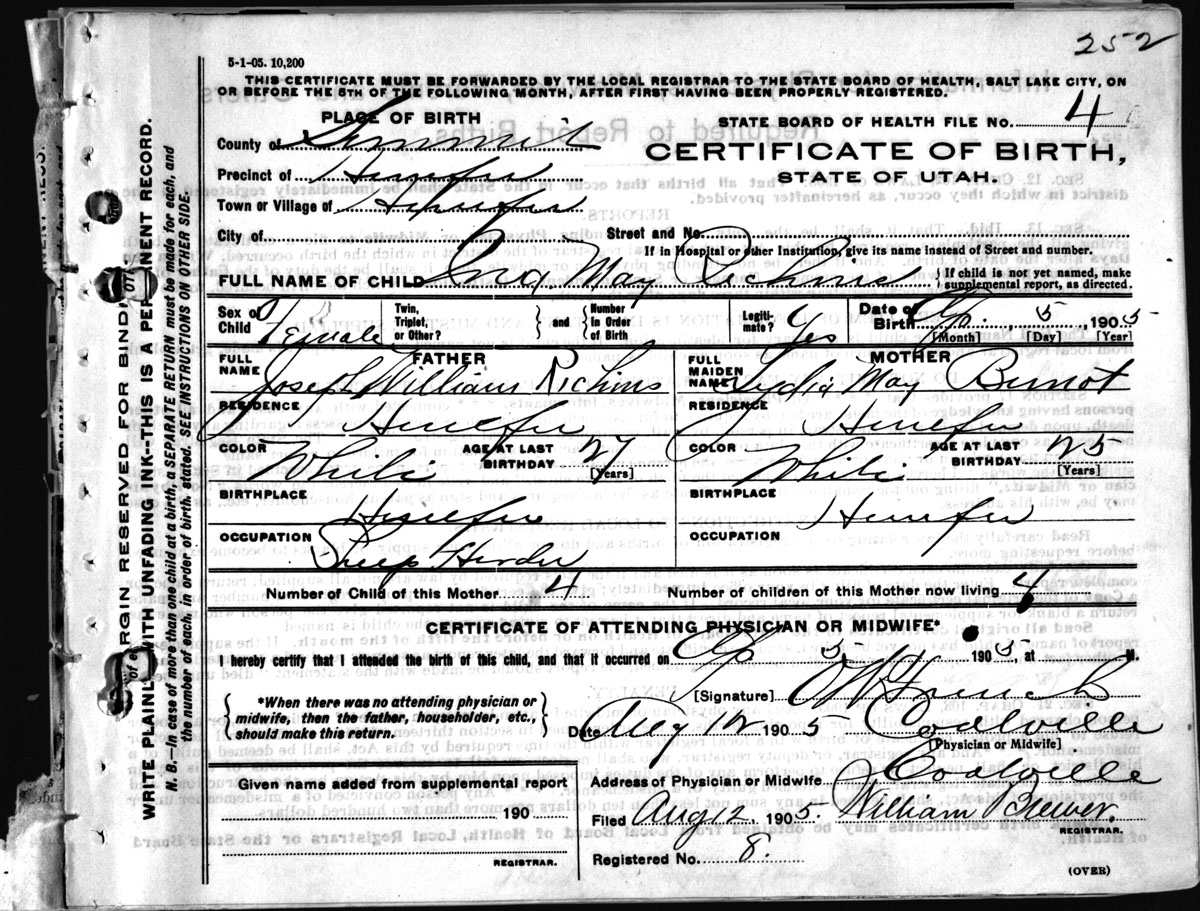 252
5-1-05. 10,200
THIS CERTIFICATE MUST BE FORWARDED BY THE LOCAL REGISTRAR TO THE STATE BOARD OF HEALTH, SALT LAKE CITY, ON
OR BEFORE THE 5TH OF THE FOLLOWING MONTH, AFTER FIRST HAVING BEEN PROPERLY REGISTERED.
PLACE OF BIRTH
STATE BOARD OF HEALTH FILE NO. 4
County of Summit
CERTIFICATE OF BIRTH,
STATE OF UTAH.
Precinct of Henefer
Town or Village of Henefer
City of Street and No.
If in Hospital or other Institution, give its name instead of Street and number.
FULL NAME OF CHILD Ina May Richins { If child is not yet named, make supplemental report, as directed.
Sex of Child Female Twin, Triplet, or Other? } and { Number in Order of Birth Legitimate? Yes Date of Birth Ap. 5 1905
[Month] [Day] [Year]
FATHER
MOTHER
FULL NAME Joseph William Richins
FULL MAIDEN NAME Lydia May
RESIDENCE Henefer
RESIDENCE Henefer
COLOR White AGE AT LAST BIRTHDAY 27 [Years]
COLOR White AGE AT LAST BIRTHDAY 25 [Years]
BIRTHPLACE Henefer
BIRTHPLACE Henefer
OCCUPATION Sheep Herder
OCCUPATION
Number of Child of this Mother 4 Number of children of this Mother now living 4
CERTIFICATE OF ATTENDING PHYSICIAN OR MIDWIFE*
I hereby certify that I attended the birth of this child, and that it occurred on Ap 5 1905, at M.
{ *When there was no attending physician or midwife, then the father, householder, etc., should make this return. }
[Signature]
Date Aug 12 1905 Coalville
[Physician or Midwife].
Given name added from supplemental report
190
REGISTRAR.
Address of Physician or Midwife Coalville
Filed Aug 12, 1905. William Brewer.
REGISTRAR.
Registered No. 8.
(OVER)
MARGIN RESERVED FOR BINDING
WRITE PLAINLY WITH UNFADING INK—THIS IS A PERMANENT RECORD.
N. B.—In case of more than one child at a birth, a SEPARATE RETURN must be made for each, and
the number of each, in order of birth, stated. SEE INSTRUCTIONS ON OTHER SIDE.